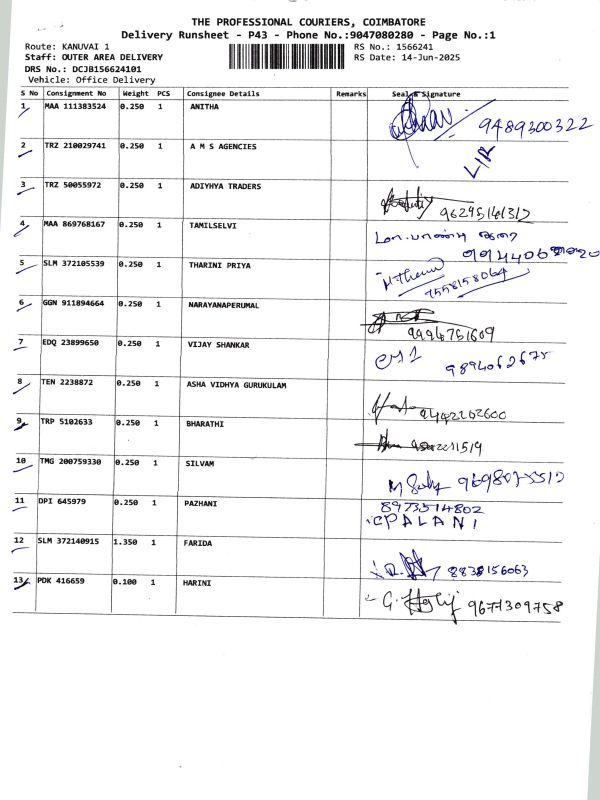 THE PROFESSIONAL COURIERS, COIMBATORE
Delivery Runsheet - P43 - Phone No.:9047080280 - Page No.:1
Route: KANUVAI 1
RS No.: 1566241
Staff: OUTER AREA DELIVERY
RS Date: 14-Jun-2025
DRS No.: DCJB156624101
Vehicle: Office Delivery
S No Consignment No Weight PCS Consignee Details Remarks Seal & Signature
1 MAA 111383524 0.250 1 ANITHA 9489300322
2 TRZ 210029741 0.250 1 A M S AGENCIES L/R
3 TRZ 50055972 0.250 1 ADIYHYA TRADERS
4 MAA 869768167 0.250 1 TAMILSELVI
5 SLM 372105539 0.250 1 THARINI PRIYA 7558158064
6 GGN 911894664 0.250 1 NARAYANAPERUMAL 9994751609
7 EDQ 23899650 0.250 1 VIJAY SHANKAR 9894062675
8 TEN 2238872 0.250 1 ASHA VIDHYA GURUKULAM 9442262600
9 TRP 5102633 0.250 1 BHARATHI
10 TMG 200759330 0.250 1 SILVAM
11 DPI 645979 0.250 1 PAZHANI 8973514802
C PALANI
12 SLM 372140915 1.350 1 FARIDA 8838156063
13 PDK 416659 0.100 1 HARINI 9677309758